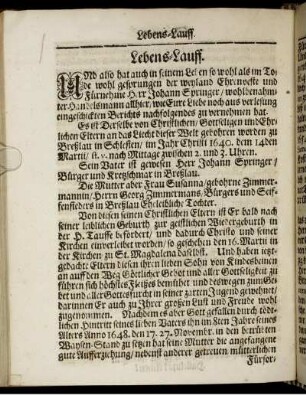 Lebens-Lauff.
Lebens-Lauff.
UNd also hat auch in seinem Leben so wohl als im To-
de wohl gesprungen der weyland Ehrenveste und
Fürnehme Herr Johann Springer / wohlbenahm-
ter Handelsmann allhier, wie Eure Liebe noch aus verlesung
eingeschickten Berichts nachfolgendes zu vernehmen hat.
Es ist Derselbe von Christlichen / Gottseligen und Ehr-
lichen Eltern an das Liecht dieser Welt gebohren worden zu
Breßlau in Schlesien / im Jahr Christi 1640. den 14den
Martii / st. v. nach Mittage zwischen 2. und 3. Uhren.
Sein Vater ist gewesen Herr Johann Springer /
Bürger und Kretzschmar in Breßlau.
Die Mutter aber Frau Susanna / gebohrne Zimmer-
mannin / Herrn Georg Zimmermans, Bürgers und Seif-
fensieders in Breßlau Eheleibliche Tochter.
Von diesen seinen Christlichen Eltern ist Er bald nach
seiner leiblichen Geburth zur geistlichen Wiedergeburth in
der H. Tauffe befördert / und dadurch Christo und seiner
Kirchen einverleibet worden / so geschehen den 16. Martii in
der Kirchen zu St. Magdalena daselbst. Und haben jetzt-
gedachte Eltern diesen ihren lieben Sohn von Kindesbeinen
an auf den Weg Göttlicher Gebot und aller Gottseligkeit zu
führen sich höchstes Fleißes bemühet und deswegen zum Ge-
bet und aller Gottesfurcht in seiner zarten Jugend gewehnet /
darinnen Er auch zu Ihrer großen Lust und Freude wohl
zugenommen. Nachdem es aber Gott gefallen durch töde-
lichen Hintritt seines lieben Vaters ihn im 8ten Jahre seines
Alters Anno 1648. den 17. 27. Novembr. in den betrübten
Waysen-Stand zu setzen hat seine Mutter die angefangene
gute Aufferziehung / nebenst anderer getreuen mütterlichen
Fürsor-